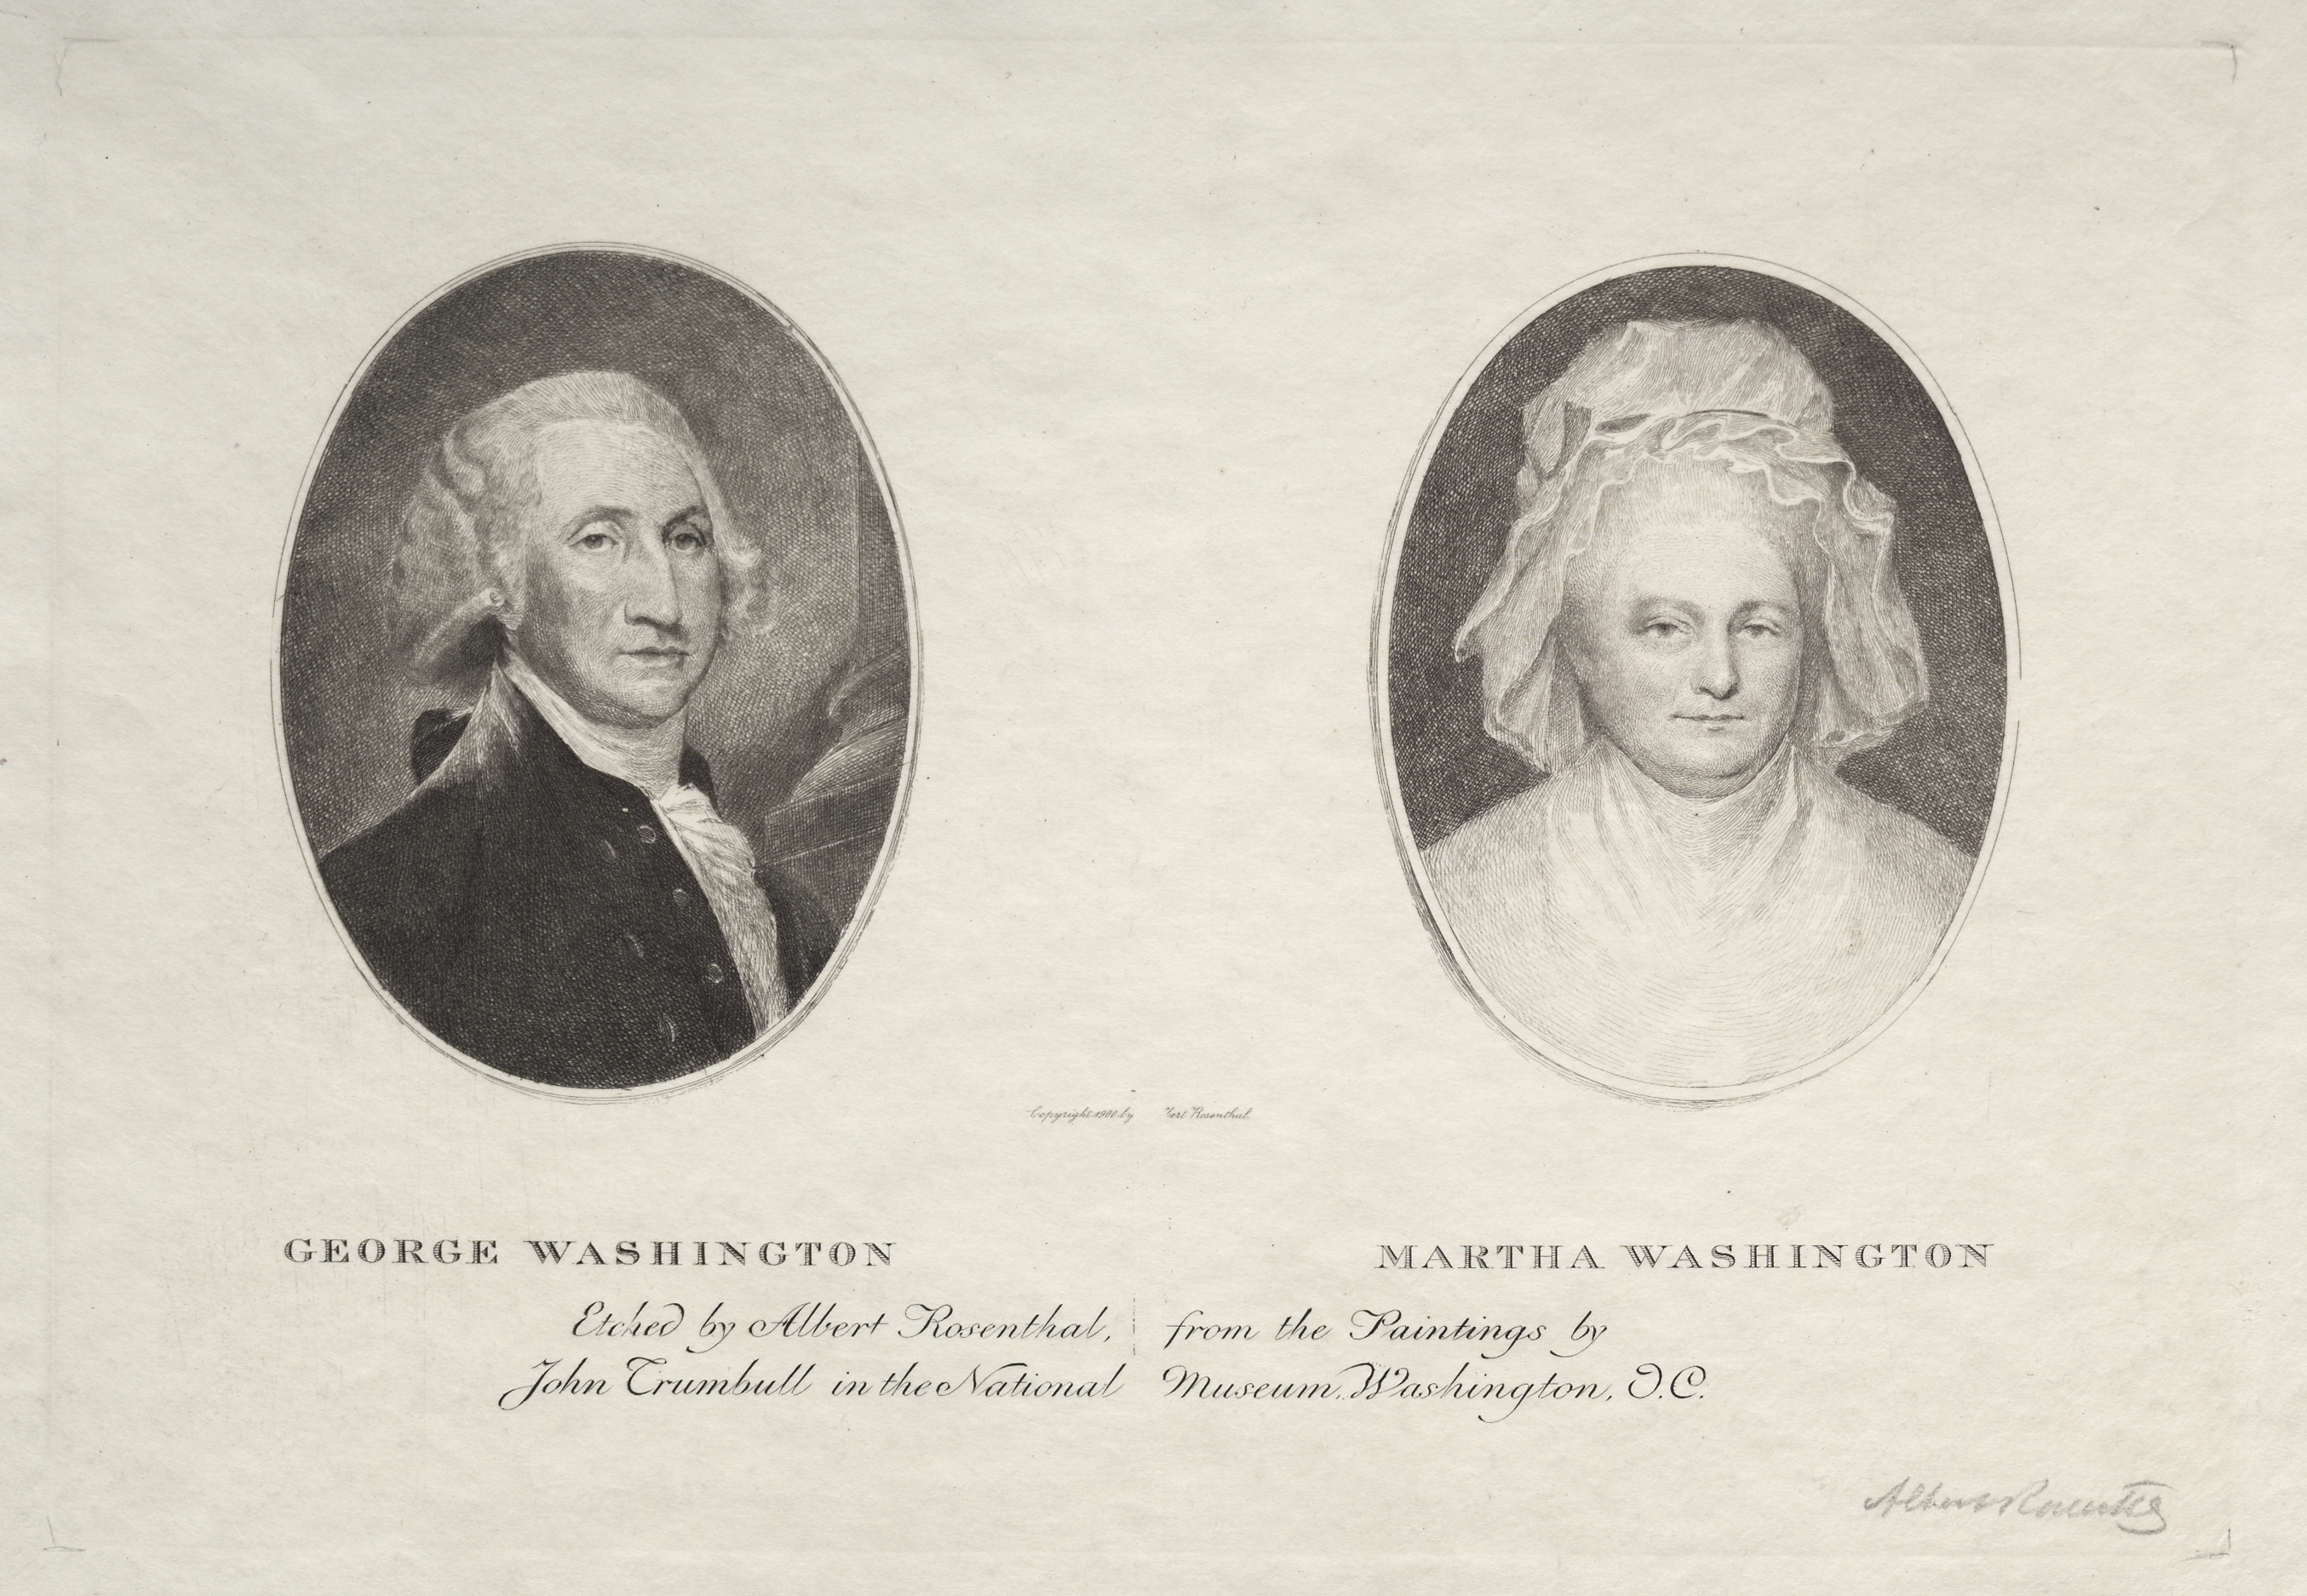 Copyright 1900 by    bert Rosenthal.
GEORGE WASHINGTON    MARTHA WASHINGTON
Etched by Albert Rosenthal, from the Paintings by
John Trumbull in the National Museum, Washington, D.C.
Albert Rosenthal